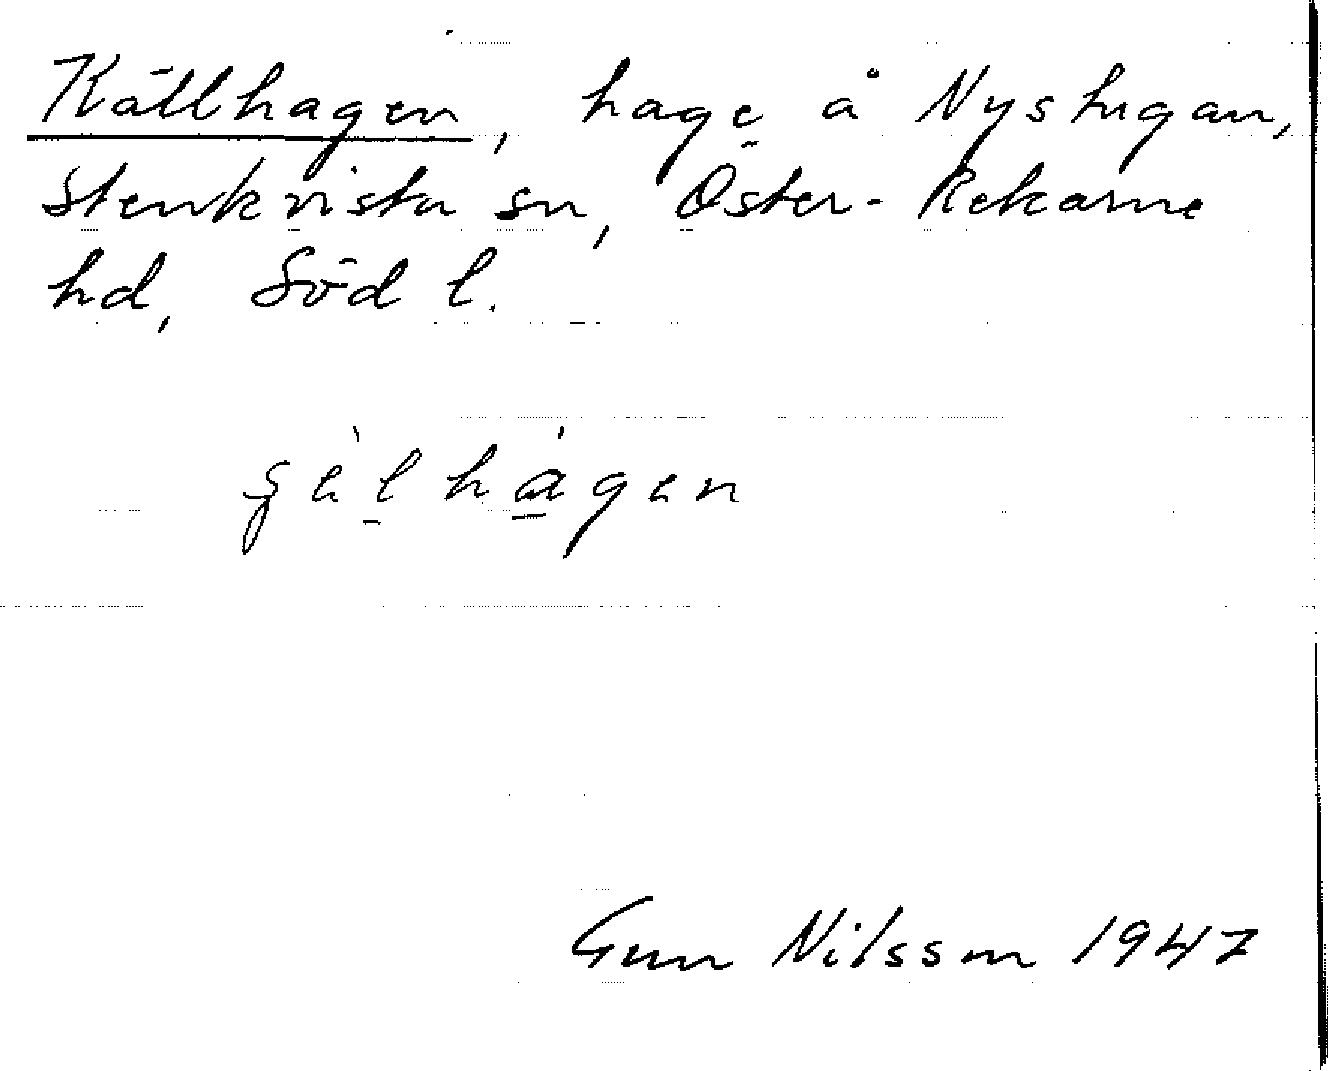 Källhagen, hage å Nystugan,
Stenkvista sn, Öster-Rekarne
hd, Söd l.
Gun Nilsson 1947